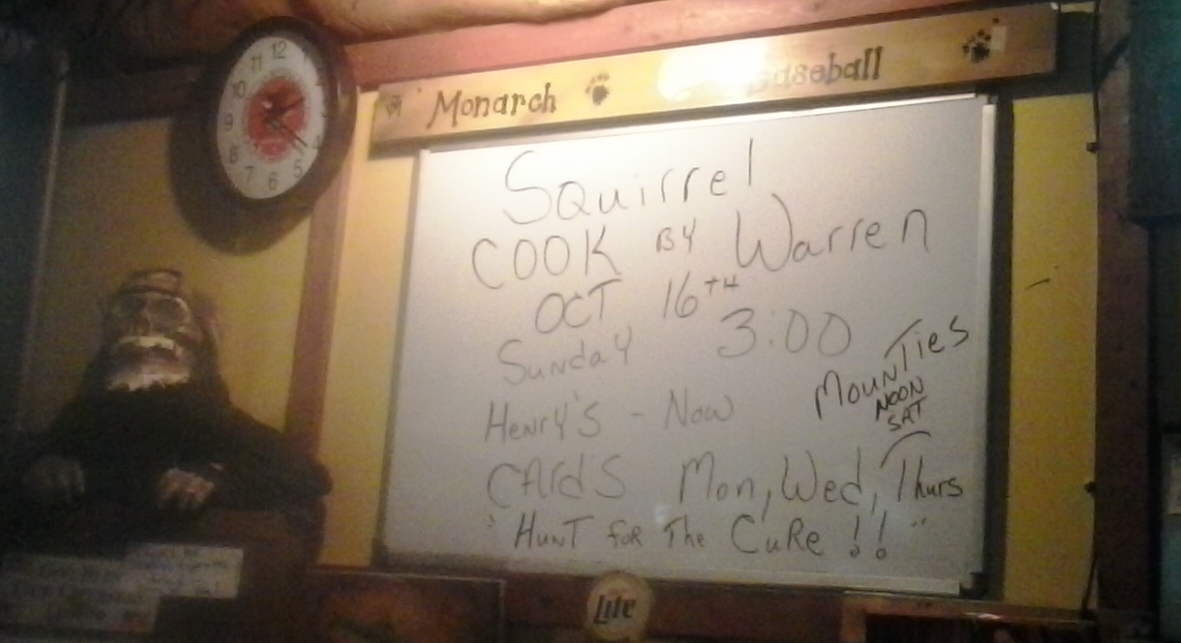 Monarch Baseball
Squirrel
COOK BY Warren
OCT 16TH
Sunday 3:00
Henry's - Now
MounTies
NOON
SAT
CArdS Mon, Wed, Thurs
"HunT foR The CuRe !!"
Lite
11 12
10
9
8
7 6 5
4